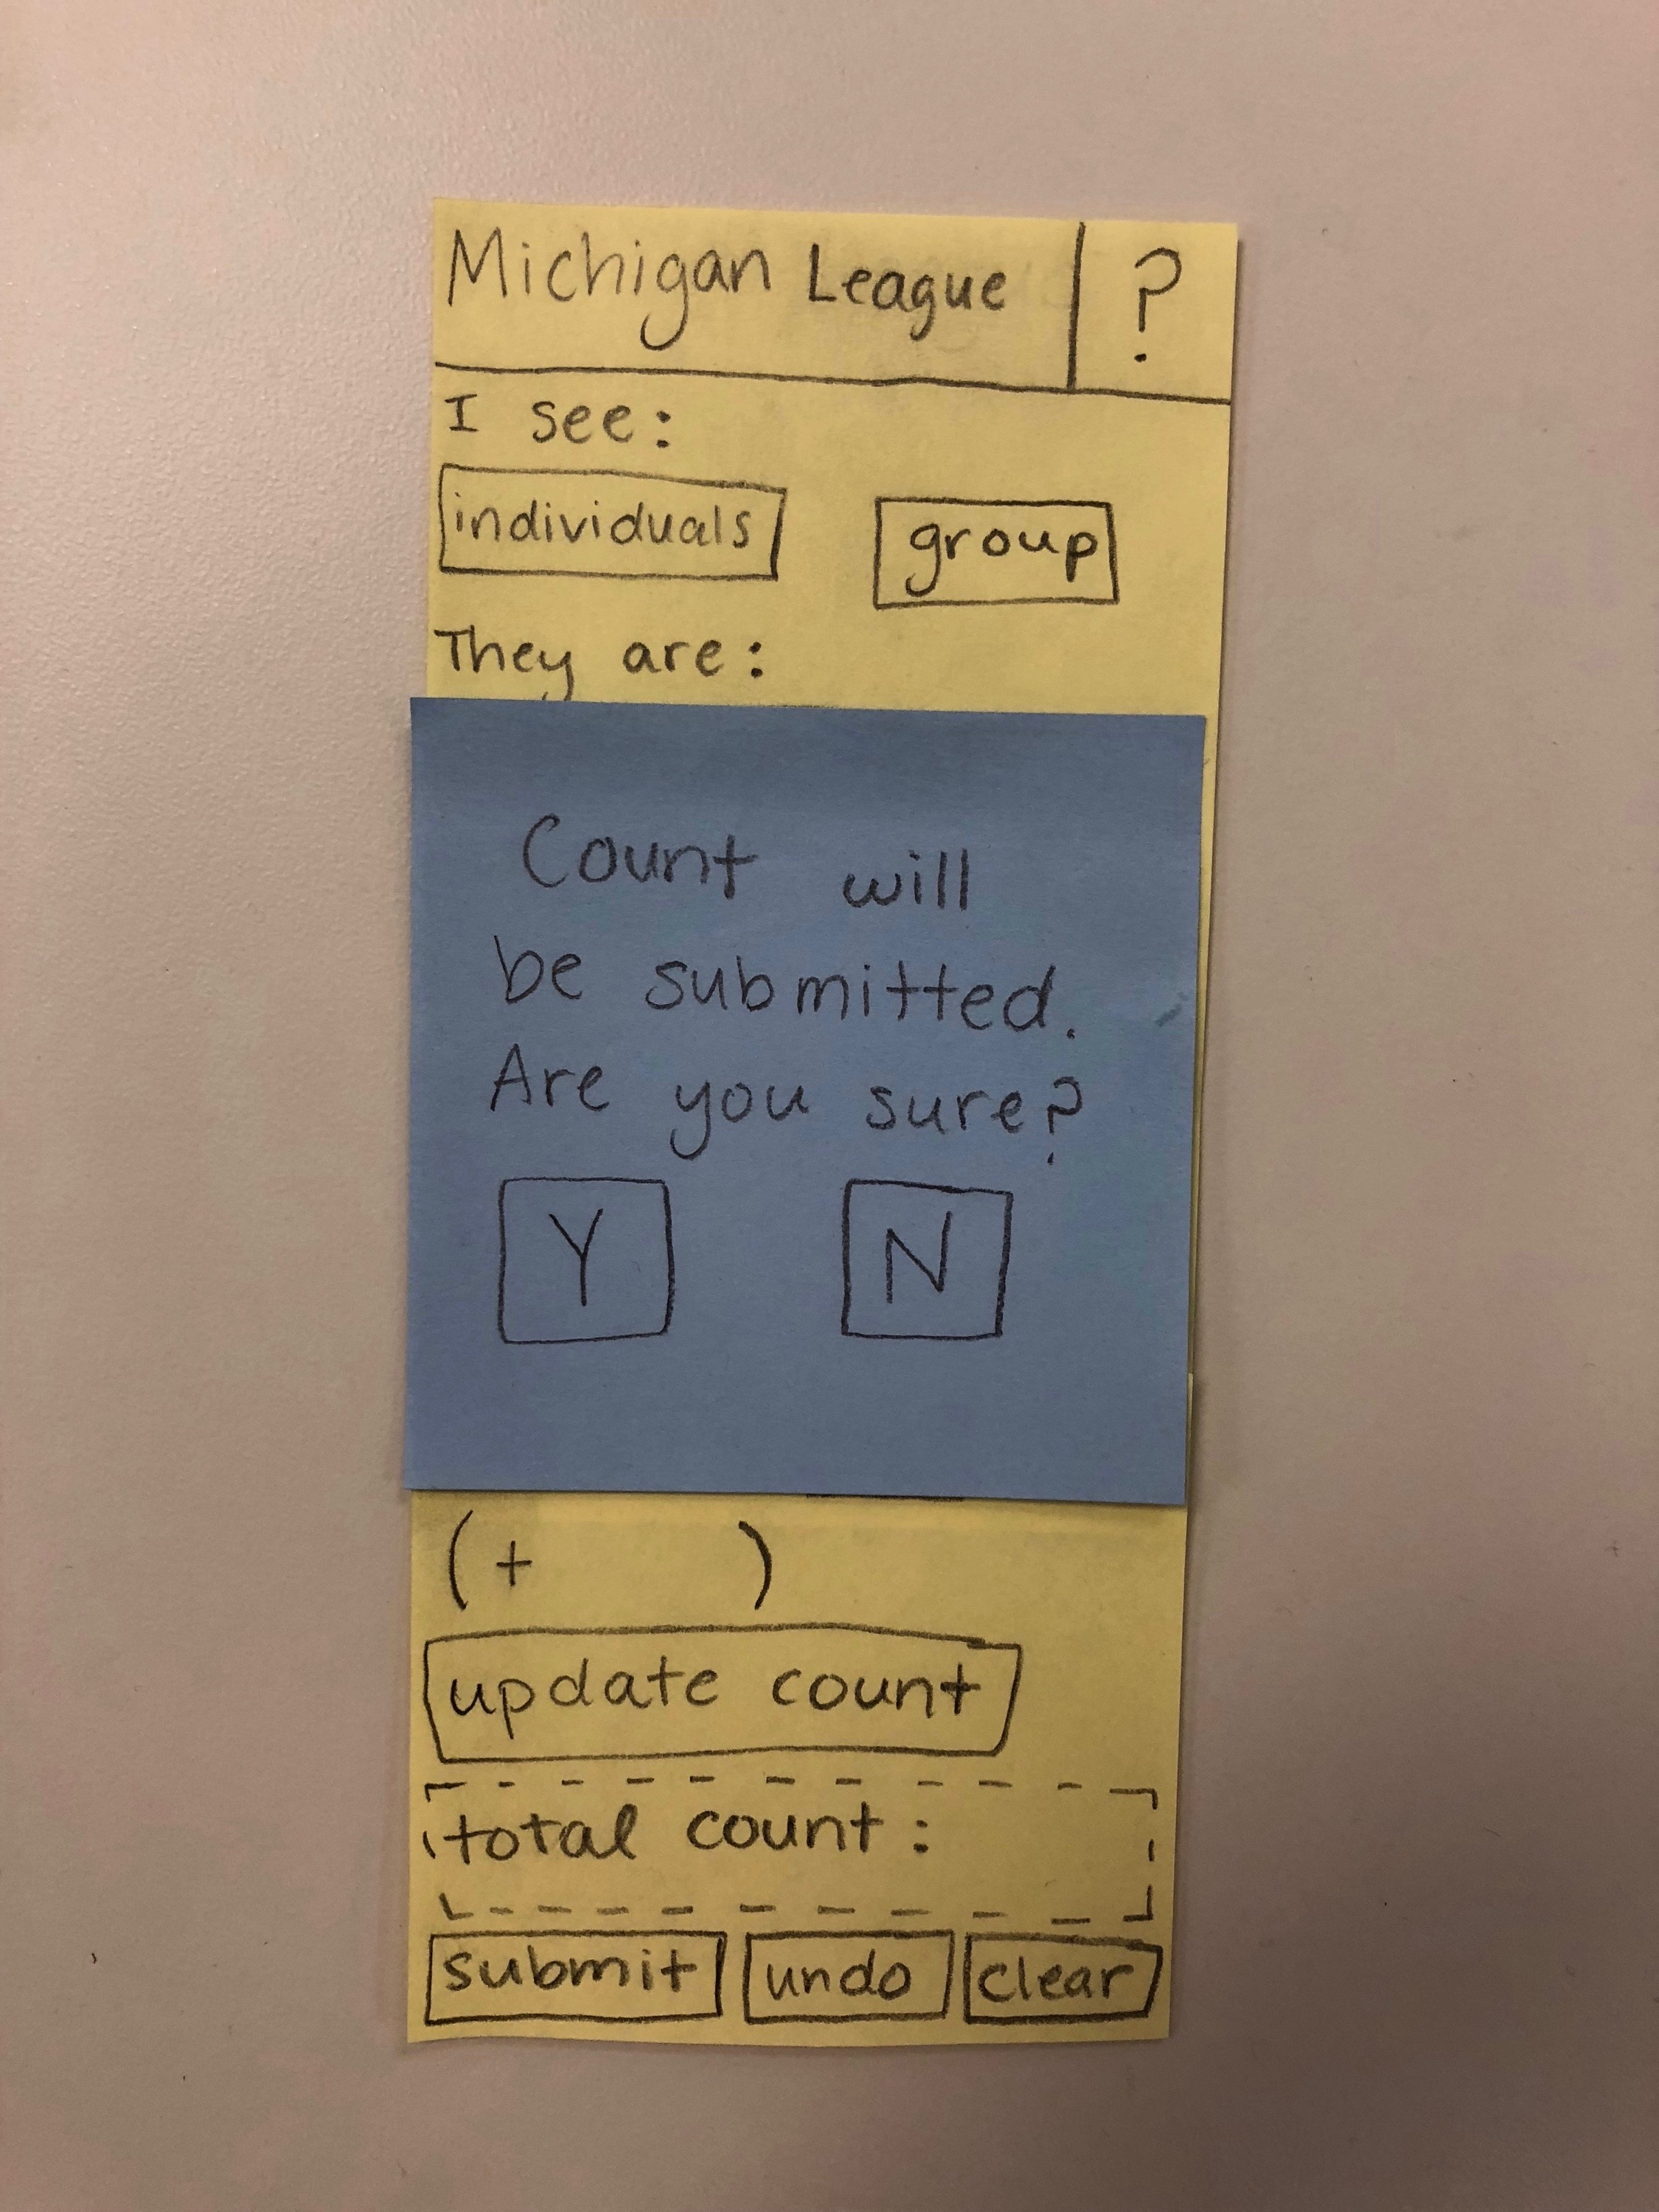 Michigan League ?
I see:
individuals group
They are:
Count will
be submitted.
Are you sure?
Y N
(+ )
update count
total count:
submit undo clear